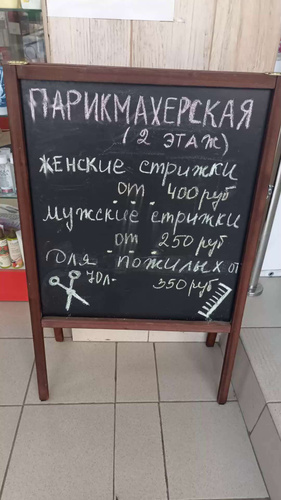 ПАРИКМАХЕРСКАЯ
(2 ЭТАЖ)
ЖЕНСКИЕ СТРИЖКИ
ОТ 400 руб
МУЖСКИЕ СТРИЖКИ
ОТ 250 руб
ДЛЯ ПОЖИЛЫХ ОТ
70Л- 350 руб